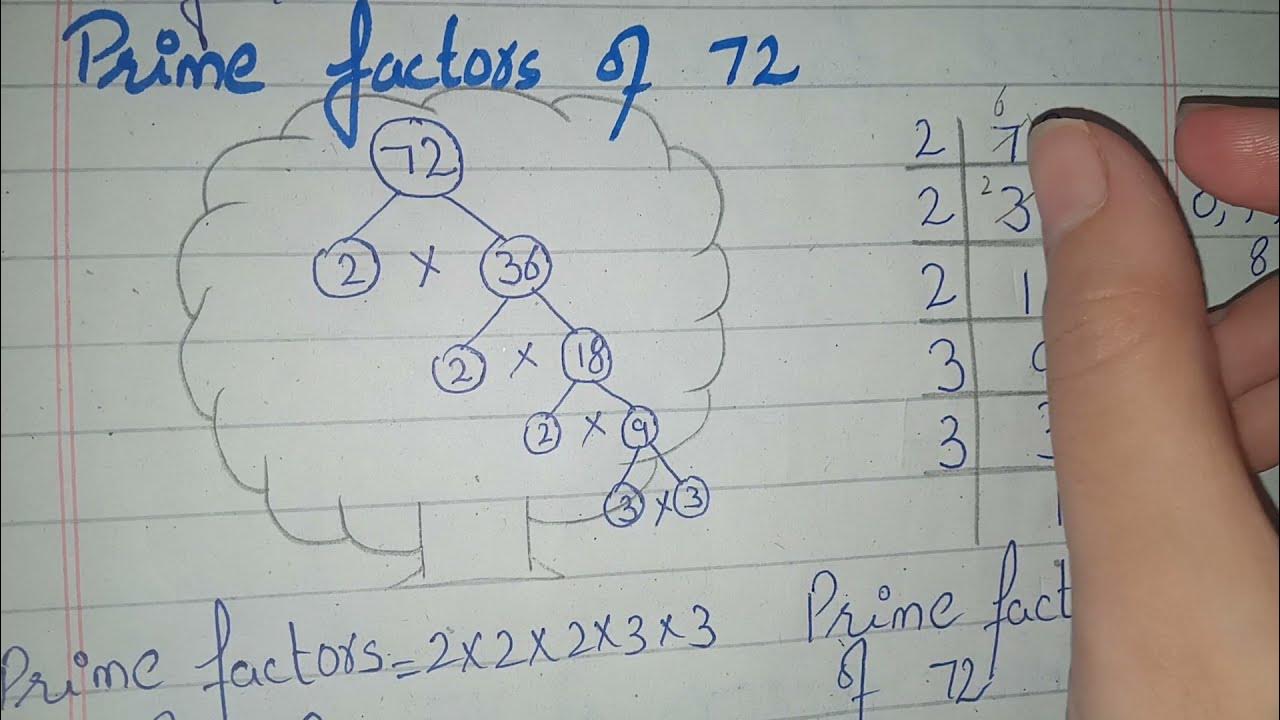 Prime factors of 72
72
2 x 36
2 x 18
2 x 9
3 x 3
6
2 7
2 2 3
2 1
3
3 3
1
0,
8
Prime factors = 2x2x2x3x3
Prime fact
of 72